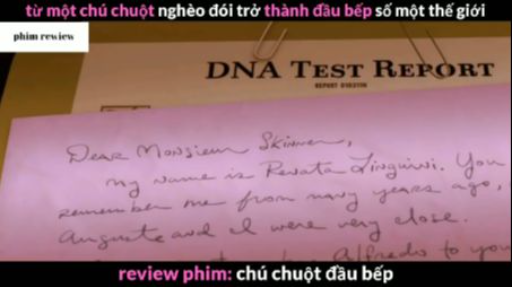 từ một chú chuột nghèo đói trở thành đầu bếp số một thế giới
phim rewiew
DNA TEST REPORT
Dear Monsieur Skinner,
my name is Renata Linguini. You
remember me from many years ago,
Auguste and I were very close.
Alfredo to you
review phim: chú chuột đầu bếp